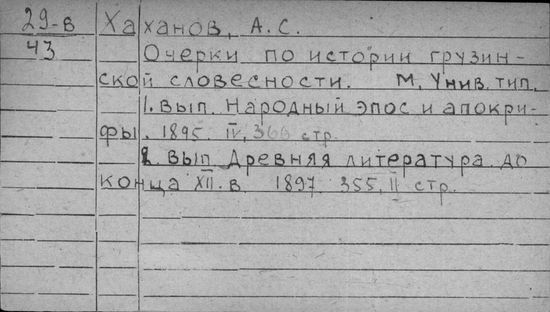 29-в Хаханов, А.С.
43
Очерки по истории грузин-
ской словесности. М. Унив. тип.
1. Вып. Народный эпос и апокри-
фы. 1895 IV, 366 стр.
2. Вып. Древняя литература до
конца XII. в 1897 355, II стр.